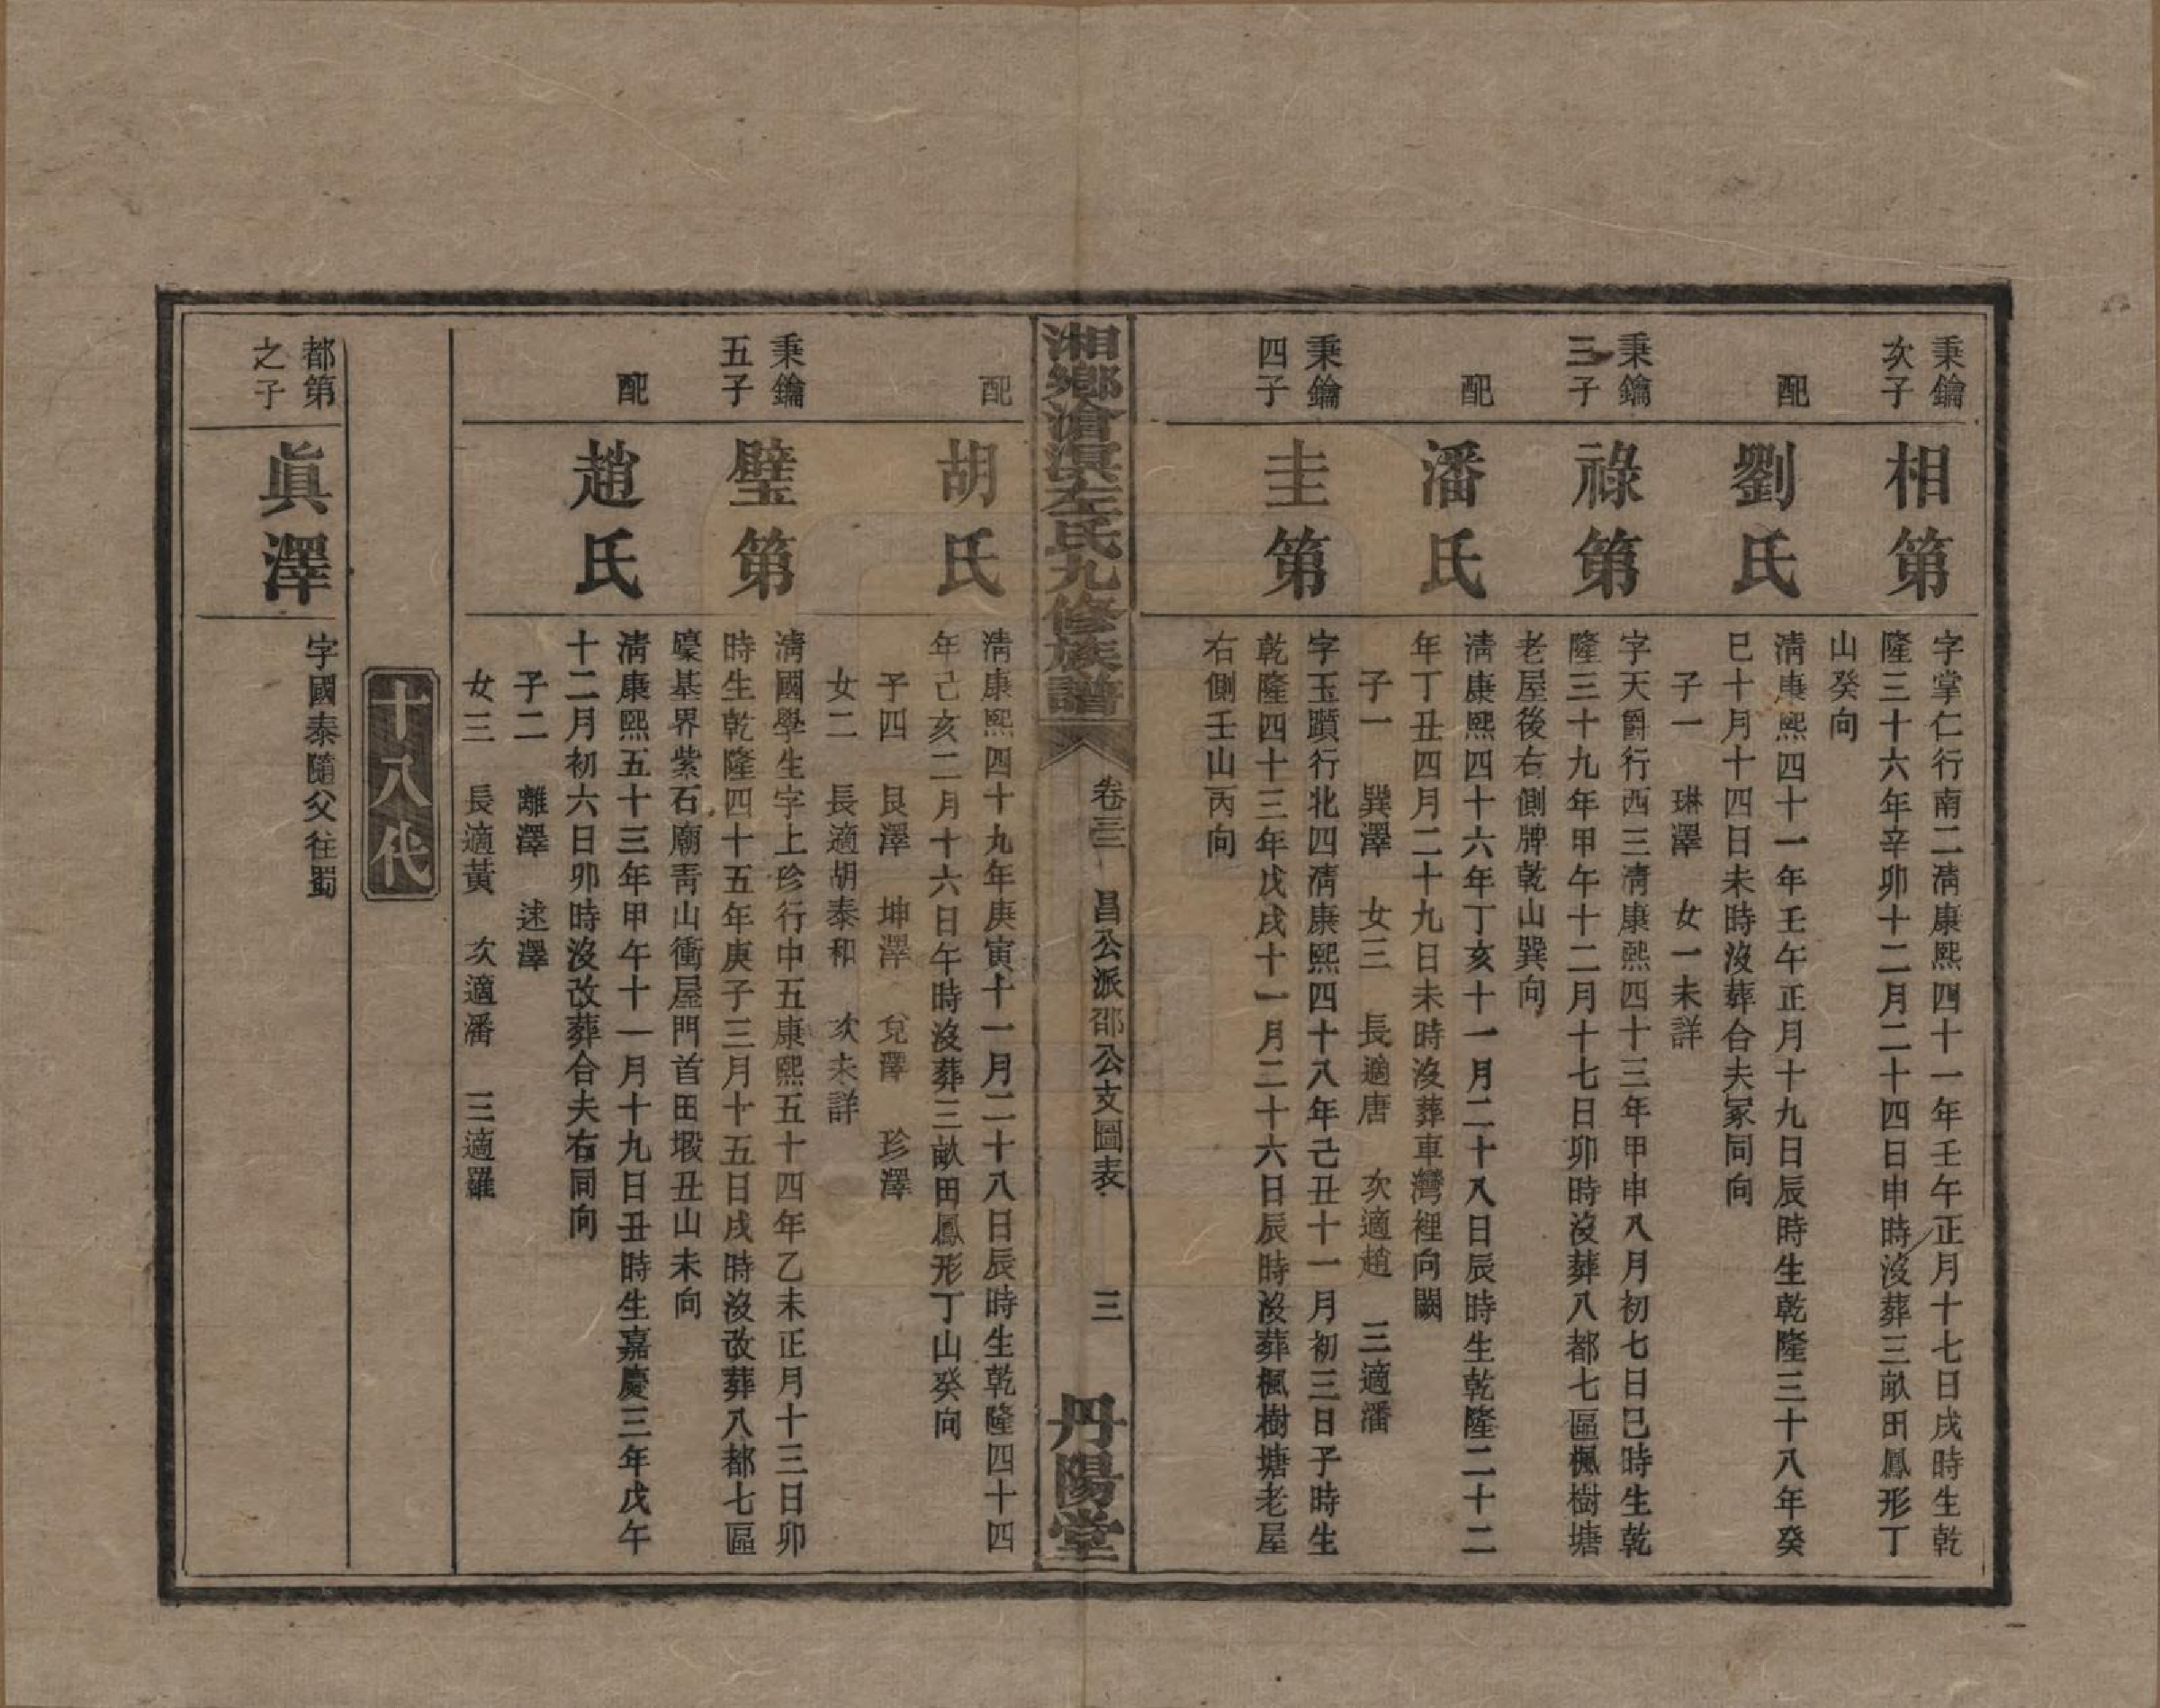 秉鑰
次子
相第
字掌仁行南二淸康熙四十一年壬午正月十七日戌時生乾
隆三十六年辛卯十二月二十四日申時沒葬三畝田鳳形丁
山癸向
配
劉氏
淸康熙四十一年壬午正月十九日辰時生乾隆三十八年癸
巳十月十四日未時沒葬合夫冢同向
子一 琳澤 女一未詳
秉鑰
三子
祿第
字天爵行西三淸康熙四十三年甲申八月初七日巳時生乾
隆三十九年甲午十二月十七日卯時沒葬八都七區楓樹塘
老屋後右側牌乾山巽向
配
潘氏
淸康熙四十六年丁亥十一月二十八日辰時生乾隆二十二
年丁丑四月二十九日未時沒葬車灣裡向闕
子一 巽澤 女三 長適唐 次適趙 三適潘
秉鑰
四子
圭第
字玉躓行北四淸康熙四十八年己丑十一月初三日子時生
乾隆四十三年戊戌十一月二十六日辰時沒葬楓樹塘老屋
右側壬山丙向
湘鄉滄溟左氏九修族譜
卷三 昌公派邵公支圖表
三
丹陽堂
配
胡氏
淸康熙四十九年庚寅十一月二十八日辰時生乾隆四十四
年己亥二月十六日午時沒葬三畝田鳳形丁山癸向
子四 艮澤 坤澤 兌澤 珍澤
女二 長適胡泰和 次未詳
秉鑰
五子
璧第
淸國學生字上珍行中五康熙五十四年乙未正月十三日卯
時生乾隆四十五年庚子三月十五日戌時沒改葬八都七區
壕基界紫石廟靑山衝屋門首田塅丑山未向
配
趙氏
淸康熙五十三年甲午十一月十九日丑時生嘉慶三年戊午
十二月初六日卯時沒改葬合夫右同向
子二 離澤 述澤
女三 長適黃 次適潘 三適羅
十八代
都第
之子
眞澤
字國泰隨父往蜀